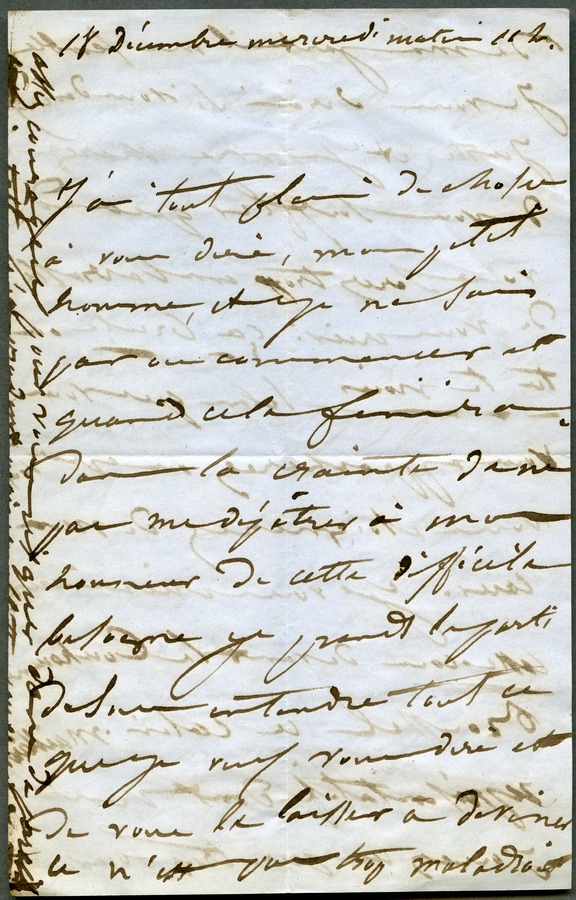 18 Décembre mercredi matin 11 h.
J'ai tout plein de chose
à vous dire, mon petit
homme, et je ne sais
par où commencer et
quand cela finira.
Dans la crainte de ne
pas me dépêtrer à mon
honneur de cette difficile
besogne je prends le parti
de sous entendre tout ce
que je veux vous dire et
de vous le laisser a deviner
ce n'est pas trop maladroit